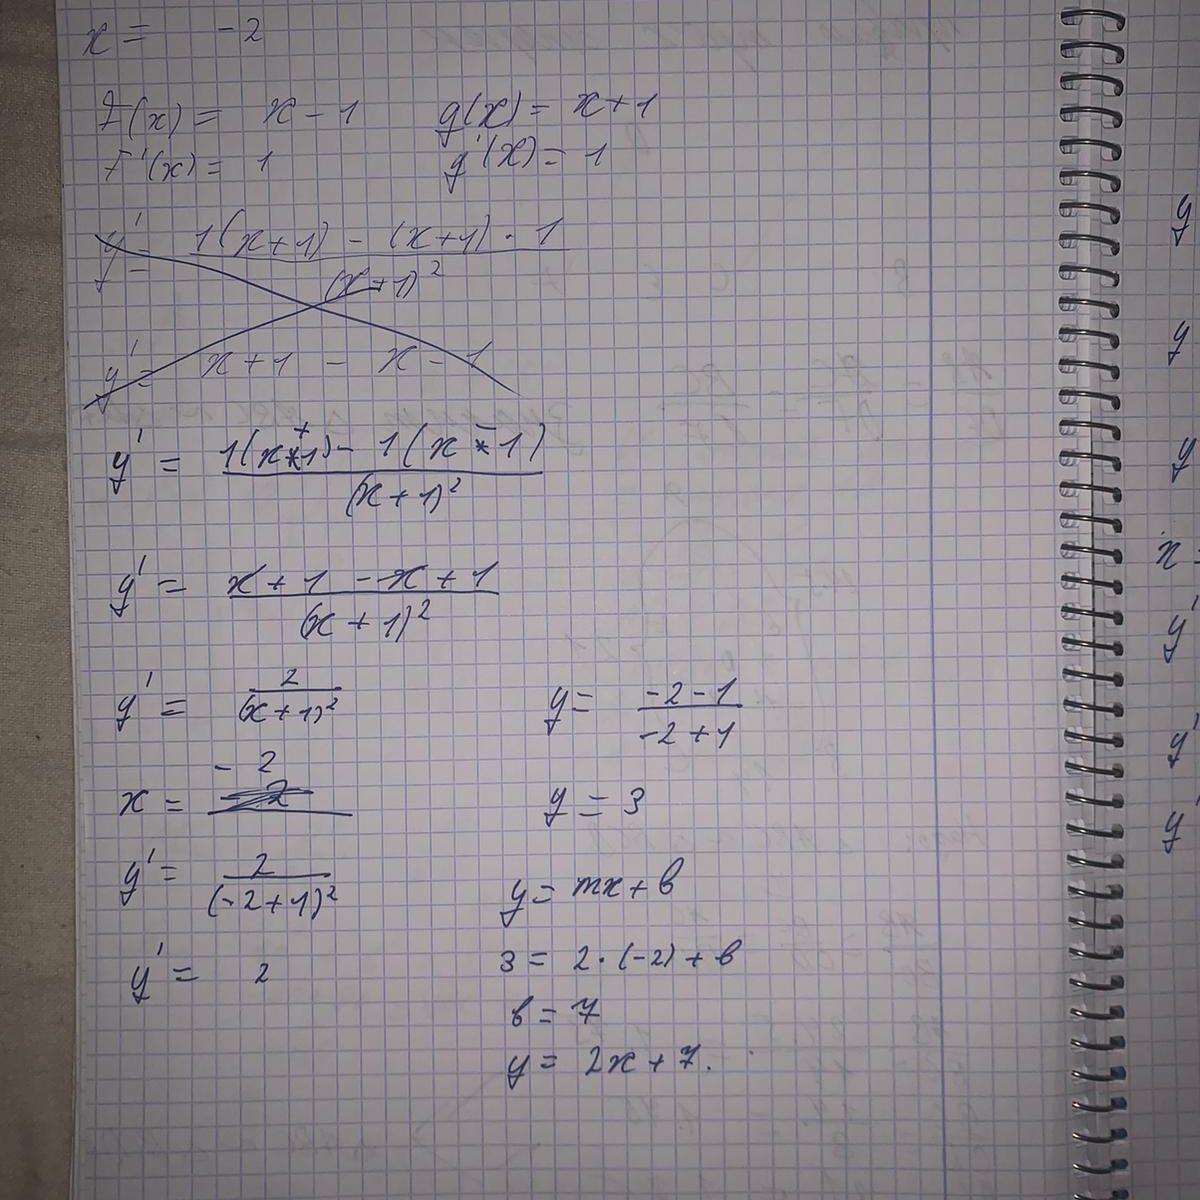 x = -2
f(x) = x - 1 g(x) = x + 1
f'(x) = 1 g'(x) = 1
y' = \frac{1(x+1) - (x+1) \cdot 1}{(x+1)^2}
y' = x + 1 - x - 1
y' = \frac{1(x+1) - 1(x-1)}{(x+1)^2}
y' = \frac{x+1-x+1}{(x+1)^2}
y' = \frac{2}{(x+1)^2}
x = -2
y' = \frac{2}{(-2+1)^2}
y' = 2
y = \frac{-2-1}{-2+1}
y = 3
y = mx + b
3 = 2 \cdot (-2) + b
b = 7
y = 2x + 7.
y
y
y
x -
y'
y'
y'